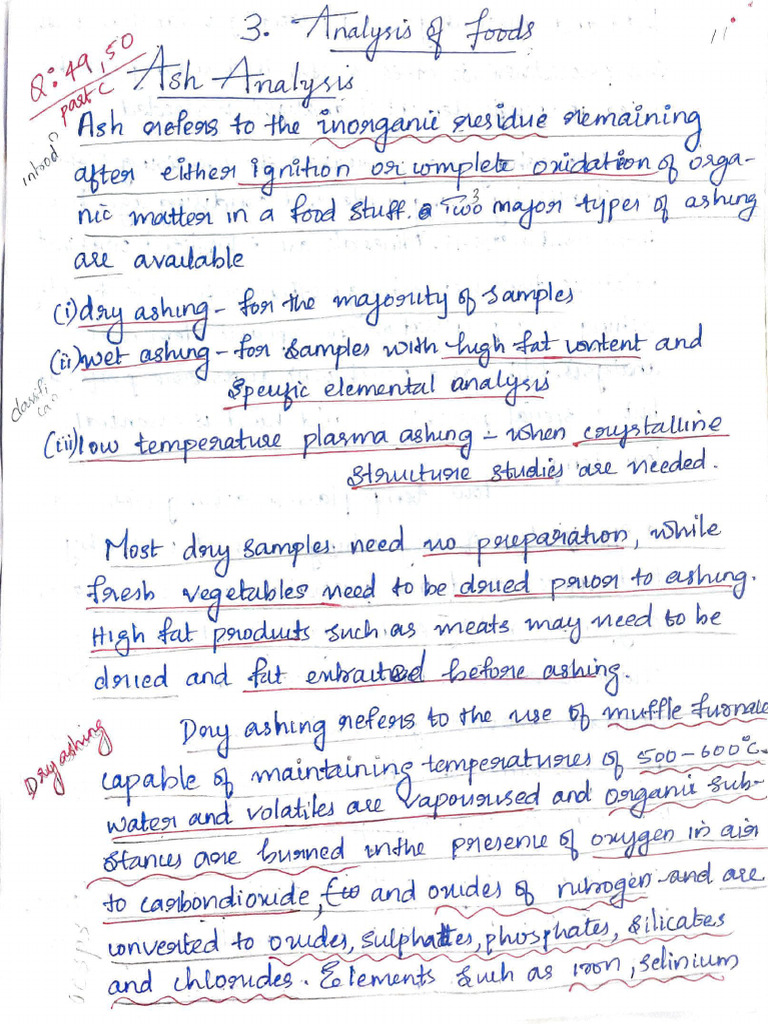 3. Analysis of Foods
11
Q: 49, 50
part C
Ash Analysis
introd
Ash refers to the inorganic residue remaining
after either ignition or complete oxidation of orga-
nic matter in a food stuff. Two 3 major types of ashing
are available
(i) dry ashing - for the majority of samples
(ii) wet ashing - for samples with high fat content and
specific elemental analysis
classifi
can
(iii) low temperature plasma ashing - when crystalline
structure studies are needed.
Most dry samples need no preparation, while
fresh vegetables need to be dried prior to ashing.
High fat products such as meats may need to be
dried and fat extracted before ashing.
Dry ashing
Dry ashing refers to the use of muffle furnace
capable of maintaining temperatures of 500-600°C.
water and volatiles are vapourised and organic sub-
stances are burned in the presence of oxygen in air
to carbondioxide, and oxides of nitrogen and are
converted to oxides, sulphates, phosphates, silicates
and chlorides. Elements such as iron, selinium